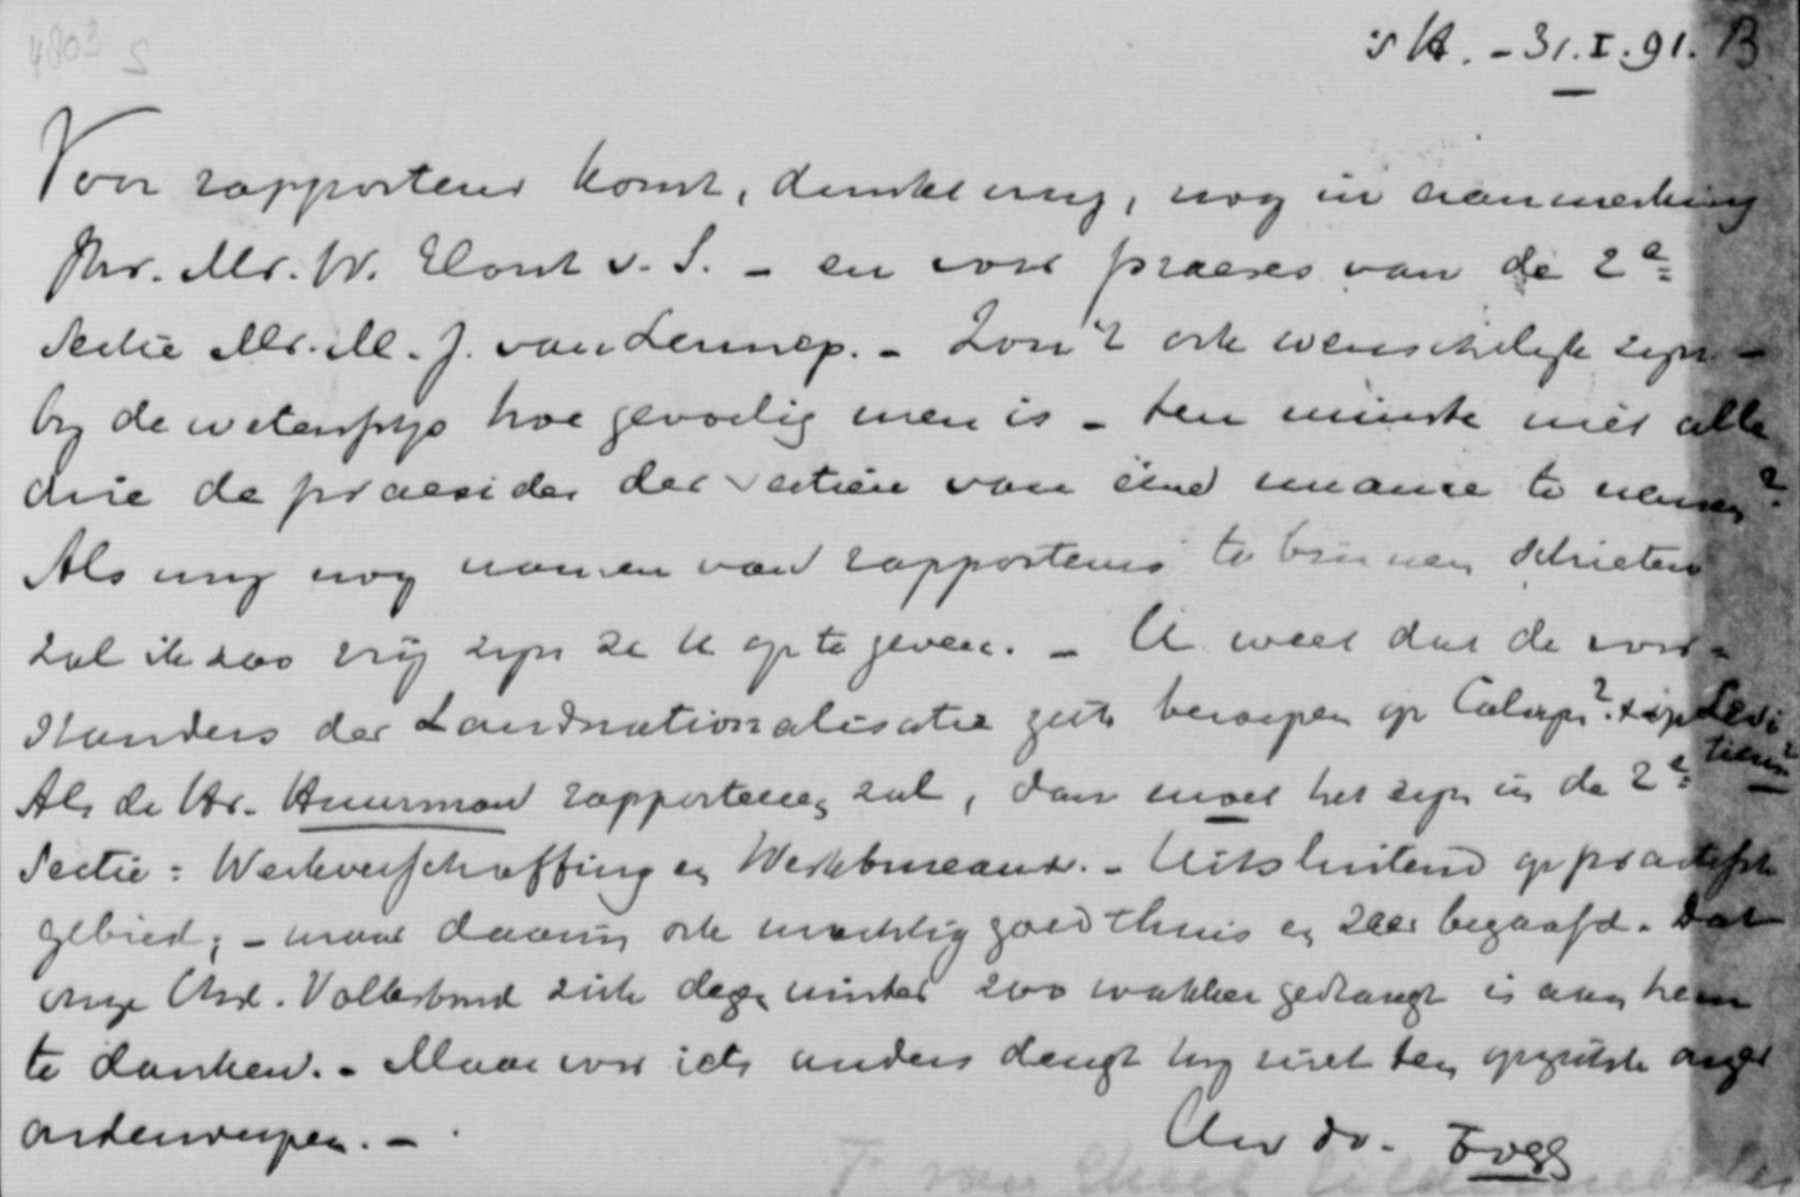 4803 S
's H. - 31.I.91. B
Voor rapporteur komt, dunkt my, nog in aanmerking
Jhr. Mr. W. Elout v. S. - en voor praeses van de 2e
Sectie Mr. M. J. van Lennep. - Zou 't ook wenschelijk zijn -
by de wetenschap hoe gevoelig men is - ten minste niet alle
drie de praesides der sectiën van ééne nuance te nemen?
Als my nog namen van rapporteurs te binnen schieten
zal ik zoo vrij zijn ze U op te geven. - U weet dat de voor-
standers der Landnationalisatie zich beroepen op Calvijn? op Levi
ticus?
Als de Hr. Huurman rapporteeren zal, dan moet het zijn in de 2e
Sectie: Werkverschaffing en Werkbureaux. - Uitsluitend op practisch
gebied; - maar daarin ook machtig goed thuis en zeer begaafd. Dat
onze Chr. Volksbond zich dezen winter zoo wakker gedraagt is aan hem
te danken. - Maar voor iets anders deugt hy niet ten opzichte onzer
onderwerpen. -
Uw dv.